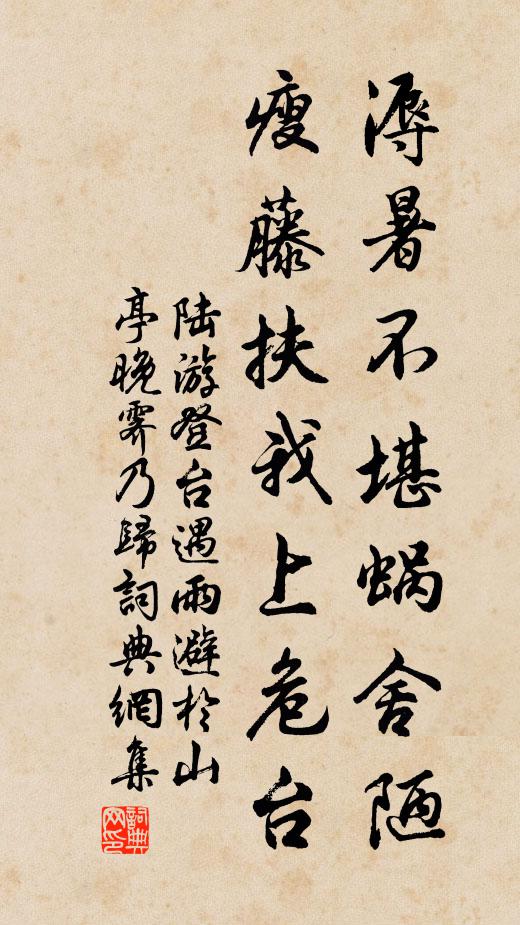 溽暑不堪蝸舍陋
瘦藤扶我上危台
陆游登台遇雨避於山
亭晚霽乃歸詞典網集
詞典
网印